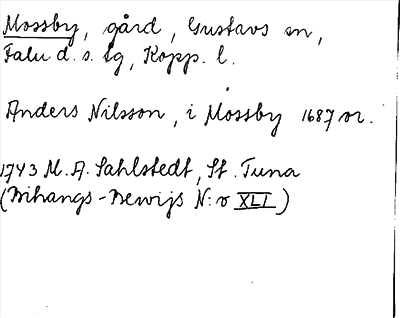 Mossby, gård, Gustavs sn,
Falu d. s. lg, Kopp. l.
Anders Nilsson, i Mossby 1687 or.
1743 M. A. Sahlstedt, St. Tuna
(Bihangs-Bewijs N:o XLI)